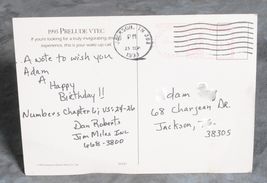 1995 PRELUDE VTEC
If you're looking for a truly invigorating driving
experience, this is your wake-up call.
A note to wish you
Adam
A
Happy
Birthday!!
Numbers Chapter 6; vss 24-26
Dan Roberts
Jim Miles Inc
668-3800
JACKSON, TN 383
PM
1995
dam
68 Charjean DR.
Jackson,
38305